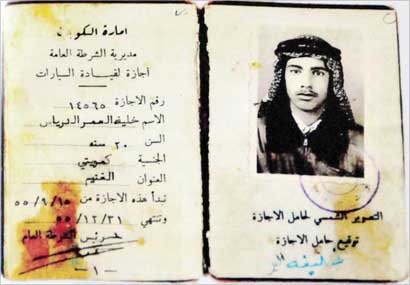 امارة الكويت
مديرية الشرطة العامة
اجازة لقيادة السيارات
رقم الاجازة ١٤٥٦٥
الاسم خليفه العمر
السن ٢٠ سنه
الجنسية كويتي
العنوان
تبدأ هذه الاجازة من ٥٥/٩/١٥
وتنتهي ٥٥/١٢/٣١
رئيس الشرطة العام
— ١ —
التصوير الشمسي لحامل الاجازة
توقيع حامل الاجازة
خليفه